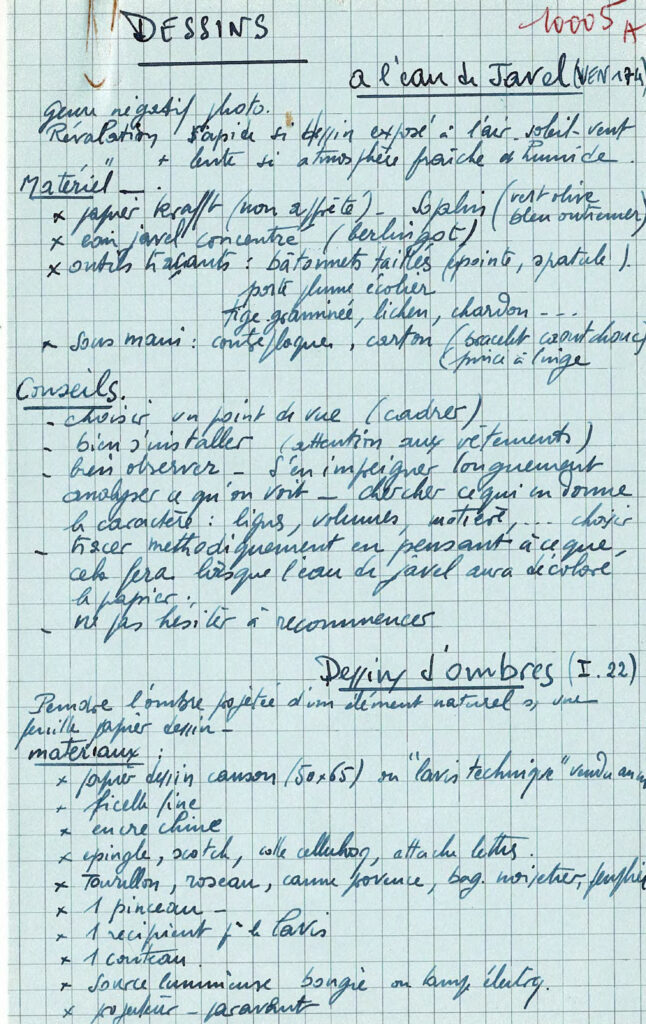 10005 A
DESSINS
a l'eau de Javel (VEN 174)
Genre négatif photo.
Révélation rapide si dessin exposé à l'air - soleil - vent
" + lente si atmosphère fraîche et humide.
Matériel -
x papier kraft (non apprêté) - Sopalin (vert olive
bleu outremer)
x eau javel concentré (berlingot)
x outils traçants : bâtonnets taillés (pointe, spatule).
porte plume écolier
tige graminée, lichen, chardon ---
x Sous main : contreplaqué, carton (bracelet caoutchouc)
(pince à linge
Conseils.
- choisir un point de vue (cadrer)
- bien s'installer (attention aux vêtements)
- bien observer - S'en impreigner longuement
analyser ce qu'on voit - chercher ce qui en donne
le caractère : lignes, volumes, matière, ... choisir
- tracer méthodiquement en pensant à ce que,
cela fera lorsque l'eau de javel aura décoloré
le papier.
- ne pas hésiter à recommencer
Dessins d'ombres (I.22)
Peindre l'ombre projetée d'un élément naturel s/ une
feuille papier dessin -
matériaux :
x papier dessin canson (50x65) ou "lavis technique" vendu au
x ficelle fine
x encre chine
x épingle, scotch, colle, attache lettres.
x Tourillon, roseau, canne provence, bag. noisetier,
x 1 pinceau -
x 1 récipient pr le lavis
x 1 couteau
x source lumineuse bougie ou lamp électrq.
x projecteur - paravent